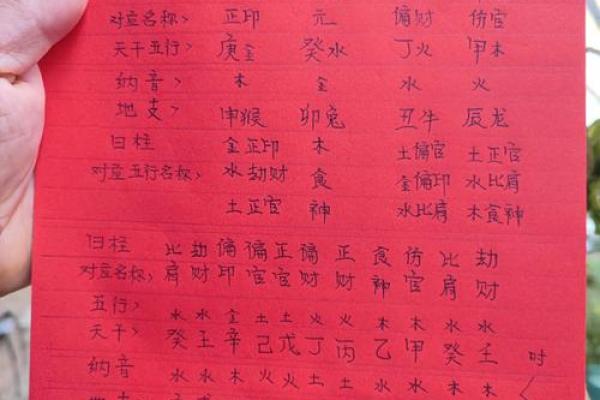 对应名称> 正印 元 偏财 伤官
天干五行> 庚金 癸水 丁火 甲木
纳音> 木 金 水 火
地支> 申猴 卯兔 丑牛 辰龙
日柱 金正印 木 土偏官 土正官
对应五行名称> 水劫财 食 金偏印 水比肩
土正官 神 水比肩 木食神
日柱 比 劫 偏 偏 正 偏 正 食 伤 比 劫
对应名称> 肩 财 印 官 官 财 财 神 官 肩 财
五行> 水 水 金 土 土 火 火 木 木 水 水
天干> 癸 壬 辛 己 戊 丁 丙 乙 甲 癸 壬 时
纳音 水 水 木 火 火 土 土 水 水 木 木